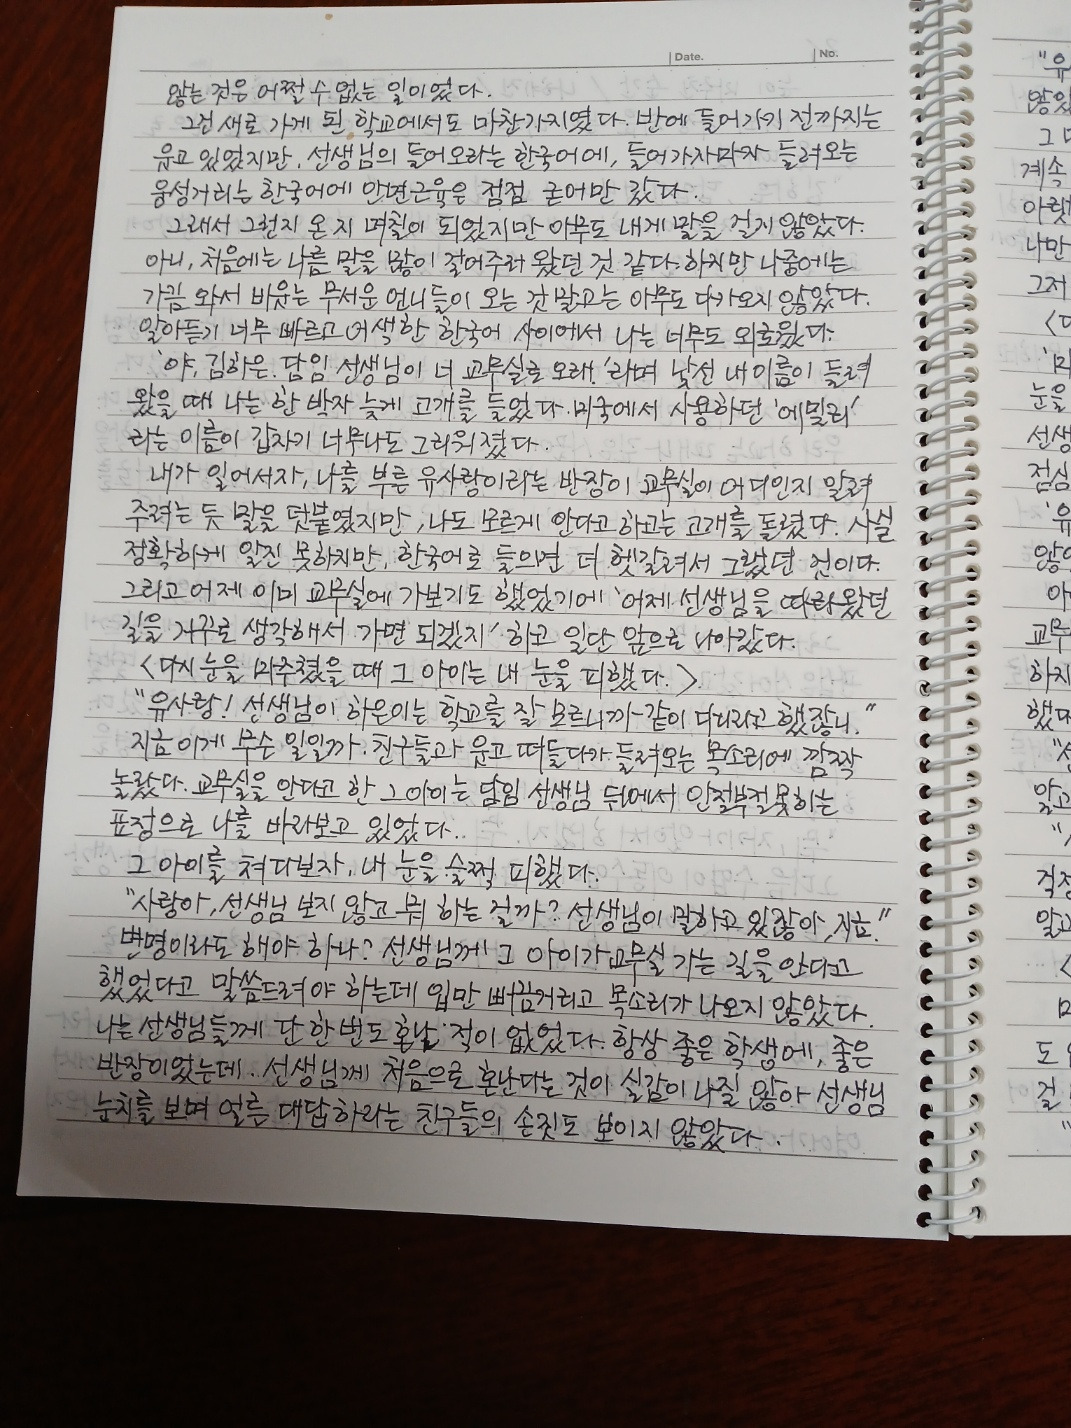 Date.
No.
않는 것은 어쩔 수 없는 일이었다.
그건 새로 가게 된 학교에서도 마찬가지였다. 반에 들어가기 전까지는
웃고 있었지만, 선생님의 들어오라는 한국어에, 들어가자마자 들려오는
웅성거리는 한국어에 안면근육은 점점 굳어만 갔다.
그래서 그런지 온 지 며칠이 되었지만 아무도 내게 말을 걸지 않았다.
아니, 처음에는 나름 말을 많이 걸어주러 왔던 것 같다. 하지만 나중에는
가끔 와서 비웃는 무서운 언니들이 오는 것 말고는 아무도 다가오지 않았다.
알아듣기 너무 빠르고 어색한 한국어 사이에서 나는 너무도 외로웠다.
'야, 김하은. 담임 선생님이 너 교무실로 오래.'라며 낯선 내 이름이 들려
왔을 때 나는 한 박자 늦게 고개를 들었다. 미국에서 사용하던 '에밀리'
라는 이름이 갑자기 너무나도 그리워졌다.
내가 일어서자, 나를 부른 유사랑이라는 반장이 교무실이 어디인지 알려
주려는 듯 말을 덧붙였지만, 나도 모르게 안다고 하고는 고개를 돌렸다. 사실
정확하게 알진 못하지만, 한국어로 들으면 더 헷갈려서 그랬던 것이다.
그리고 어제 이미 교무실에 가보기도 했었기에 '어제 선생님을 따라왔던
길을 거꾸로 생각해서 가면 되겠지' 하고 일단 앞으로 나아갔다.
<다시 눈을 마주쳤을 때 그 아이는 내 눈을 피했다.>
"유사랑! 선생님이 하은이는 학교를 잘 모르니까 같이 다니라고 했잖니."
지금 이게 무슨 일일까. 친구들과 웃고 떠들다가 들려오는 목소리에 깜짝
놀랐다. 교무실을 안다고 한 그 아이는 담임 선생님 뒤에서 안절부절못하는
표정으로 나를 바라보고 있었다..
그 아이를 쳐다보자, 내 눈을 슬쩍 피했다.
"사랑아, 선생님 보지 않고 뭐 하는 걸까? 선생님이 말하고 있잖아, 지금."
변명이라도 해야 하나? 선생님께 그 아이가 교무실 가는 길을 안다고
했었다고 말씀드려야 하는데 입만 뻐끔거리고 목소리가 나오지 않았다.
나는 선생님들께 단 한 번도 혼날 적이 없었다. 항상 좋은 학생에, 좋은
반장이었는데.. 선생님께 처음으로 혼난다는 것이 실감이 나질 않아 선생님
눈치를 보며 얼른 대답하라는 친구들의 손짓도 보이지 않았다.